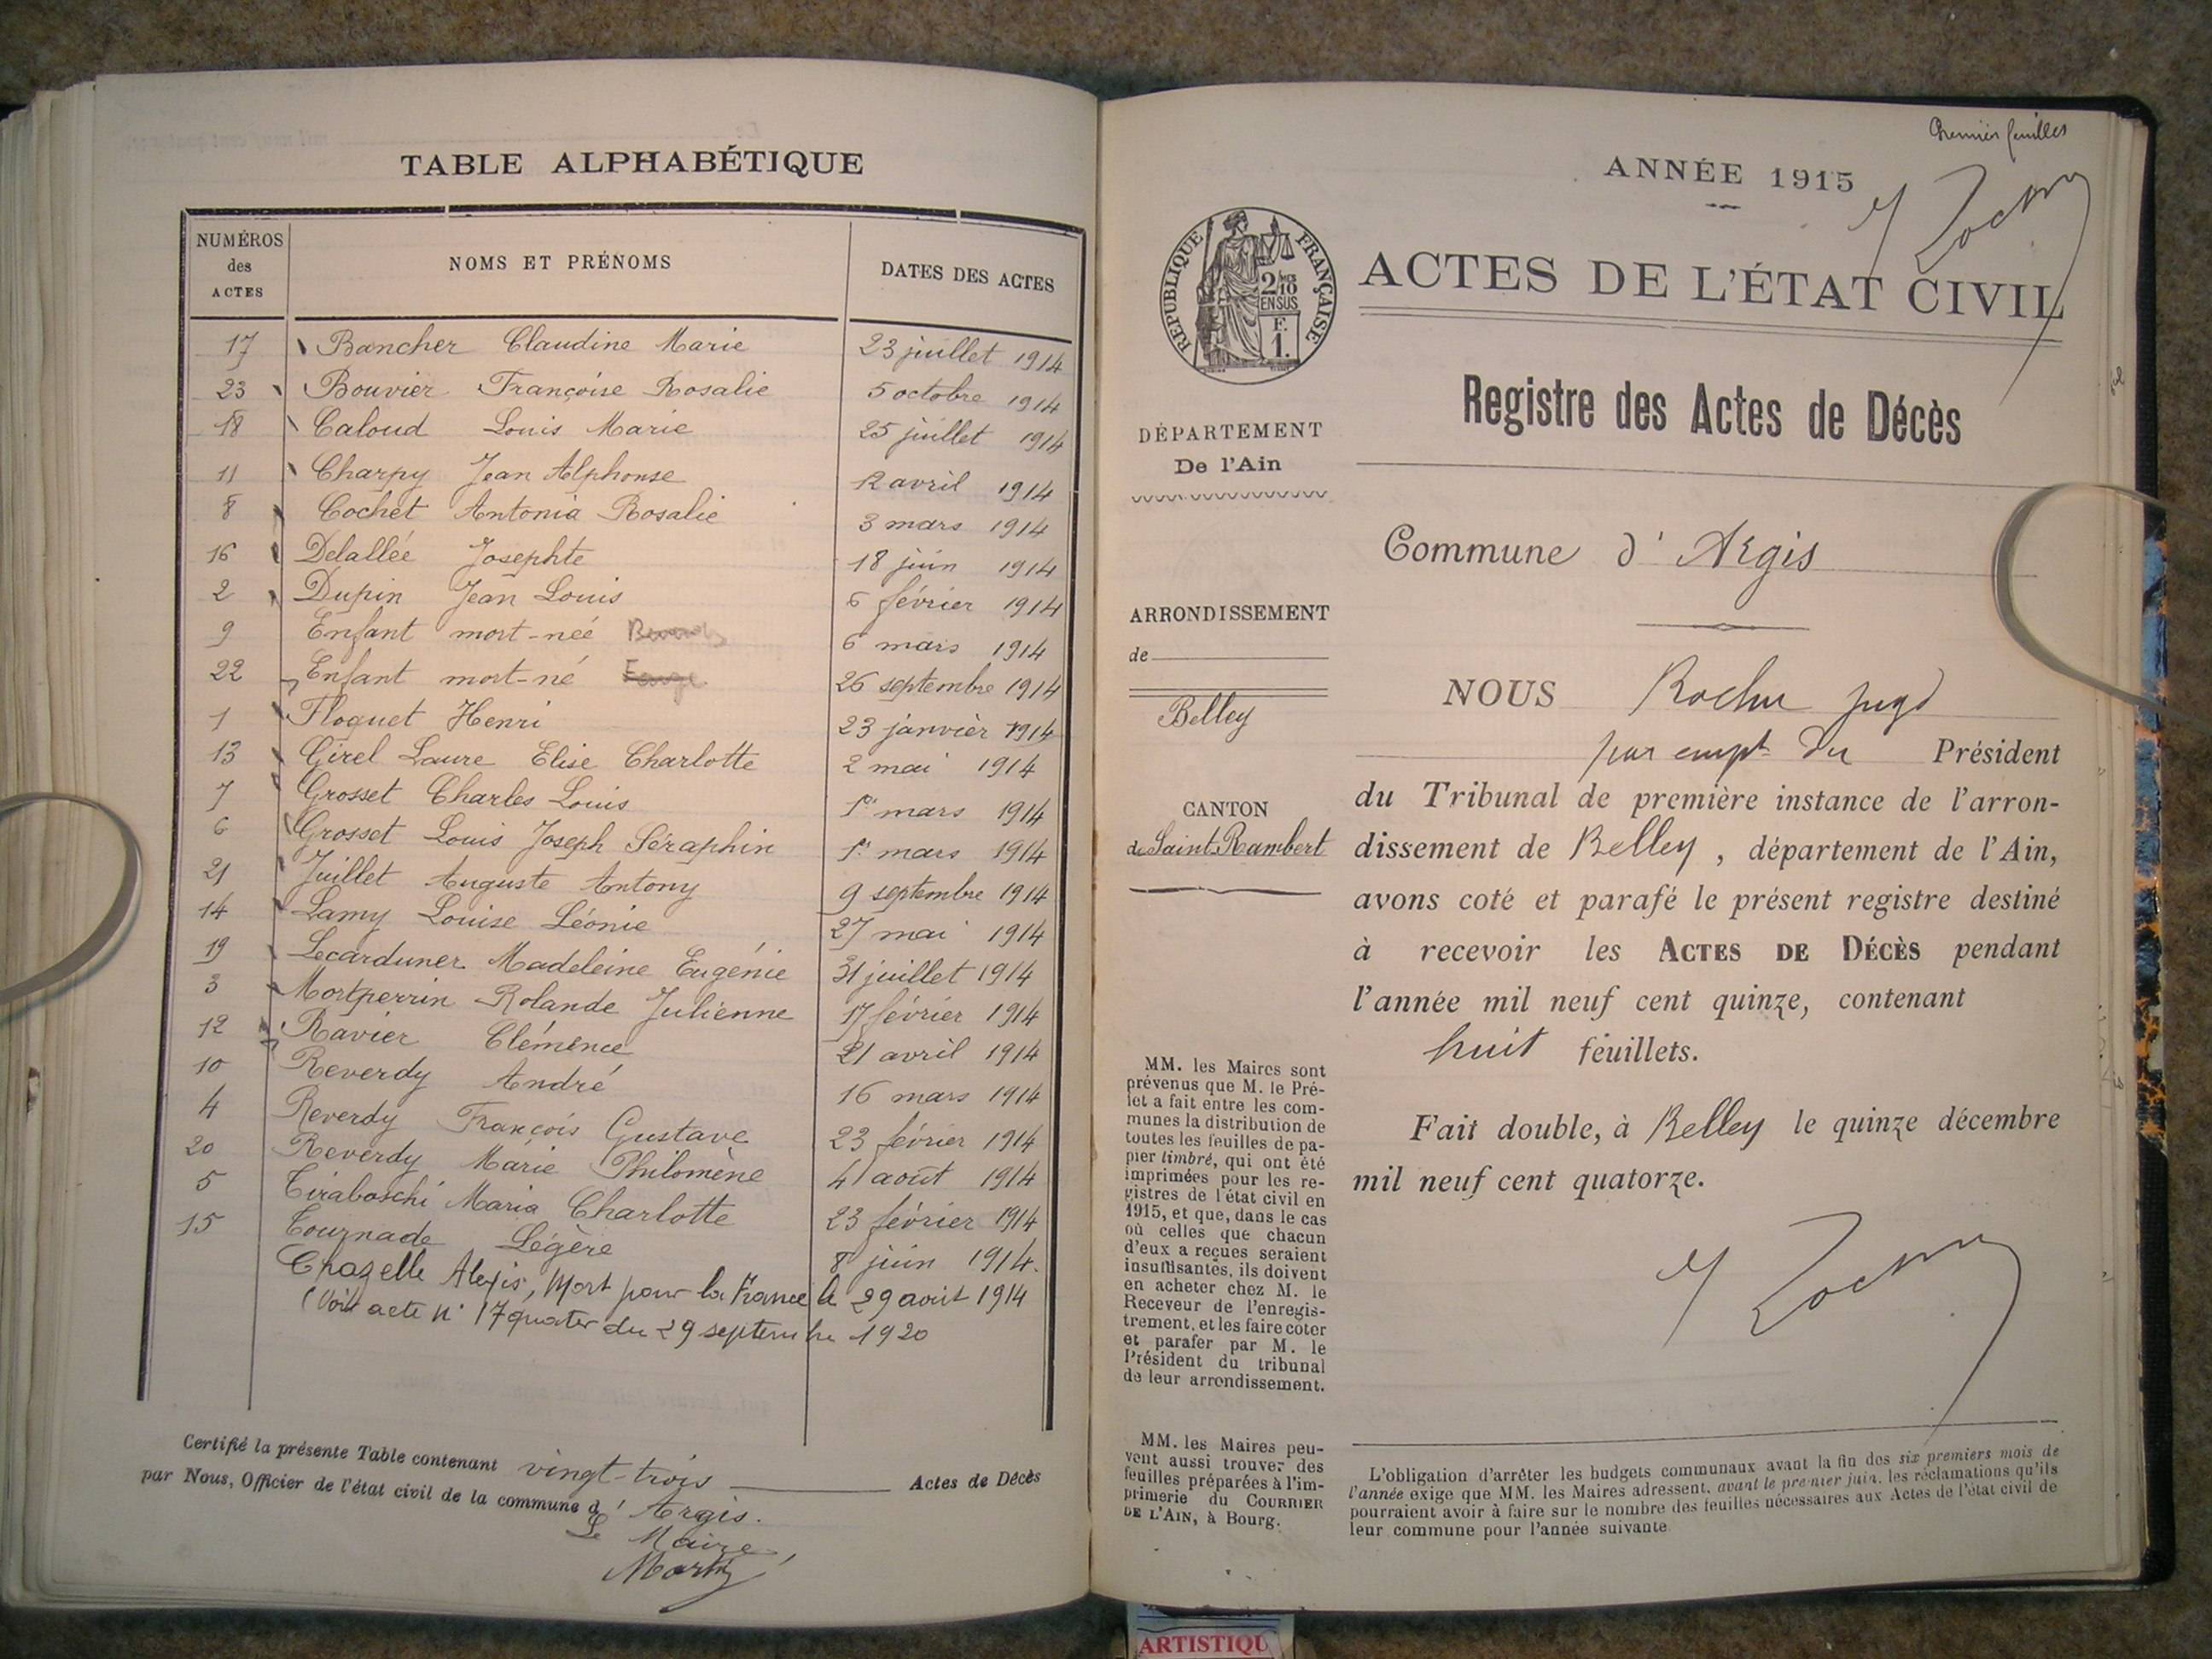 TABLE ALPHABÉTIQUE
NUMÉROS des ACTES NOMS ET PRÉNOMS DATES DES ACTES
17 Bancher Claudine Marie 23 juillet 1914
23 Bouvier Françoise Rosalie 5 octobre 1914
18 Caloud Louis Marie 25 juillet 1914
11 Charpy Jean Alphonse 12 avril 1914
8 Cochet Antonia Rosalie 3 mars 1914
16 Delallée Josephte 18 juin 1914
2 Dupin Jean Louis 6 février 1914
9 Enfant mort-néé 6 mars 1914
22 Enfant mort-né 26 septembre 1914
1 Floquet Henri 23 janvier 1914
13 Girel Laure Elise Charlotte 2 mai 1914
7 Grosset Charles Louis 1er mars 1914
6 Grosset Louis Joseph Séraphin 1er mars 1914
21 Juillet Auguste Antony 9 septembre 1914
14 Lamy Louise Léonie 27 mai 1914
19 Lecarduner Madeleine Eugénie 31 juillet 1914
3 Mortperrin Rolande Julienne 17 février 1914
12 Ravier Clémence 21 avril 1914
10 Reverdy André 16 mars 1914
4 Reverdy François Gustave 23 février 1914
20 Reverdy Marie Philomène 4 août 1914
5 Tiraboschi Maria Charlotte 23 février 1914
15 Tournade Légère 8 juin 1914.
Chazelle Alexis, Mort pour la France le 29 août 1914
(Voir acte n° 17 quater du 29 septembre 1920
Certifié la présente Table contenant vingt-trois Actes de Décès
par Nous, Officier de l'état civil de la commune d'Argis.
Le Maire,
Premier feuillet
ANNÉE 1915
RÉPUBLIQUE FRANÇAISE
2/10
EN SUS
F.
1.
ACTES DE L'ÉTAT CIVIL
Registre des Actes de Décès
DÉPARTEMENT
De l'Ain
Commune d'Argis
ARRONDISSEMENT
de
Belley
CANTON
de Saint Rambert
NOUS Rochu juge
par empt du Président
du Tribunal de première instance de l'arron-
dissement de Belley, département de l'Ain,
avons coté et parafé le présent registre destiné
à recevoir les ACTES DE DÉCÈS pendant
l'année mil neuf cent quinze, contenant
huit feuillets.
Fait double, à Belley le quinze décembre
mil neuf cent quatorze.
MM. les Maires sont
prévenus que M. le Pré-
fet a fait entre les com-
munes la distribution de
toutes les feuilles de pa-
pier timbré, qui ont été
imprimées pour les re-
gistres de l'état civil en
1915, et que, dans le cas
où celles que chacun
d'eux a reçues seraient
insuffisantes, ils doivent
en acheter chez M. le
Receveur de l'enregis-
trement, et les faire coter
et parafer par M. le
Président du tribunal
de leur arrondissement.
MM. les Maires peu-
vent aussi trouver des
feuilles préparées à l'im-
primerie du COURRIER
DE L'AIN, à Bourg.
L'obligation d'arrêter les budgets communaux avant la fin des six premiers mois de
l'année exige que MM. les Maires adressent, avant le premier juin, les réclamations qu'ils
pourraient avoir à faire sur le nombre des feuilles nécessaires aux Actes de l'état civil de
leur commune pour l'année suivante
ARTISTIQU